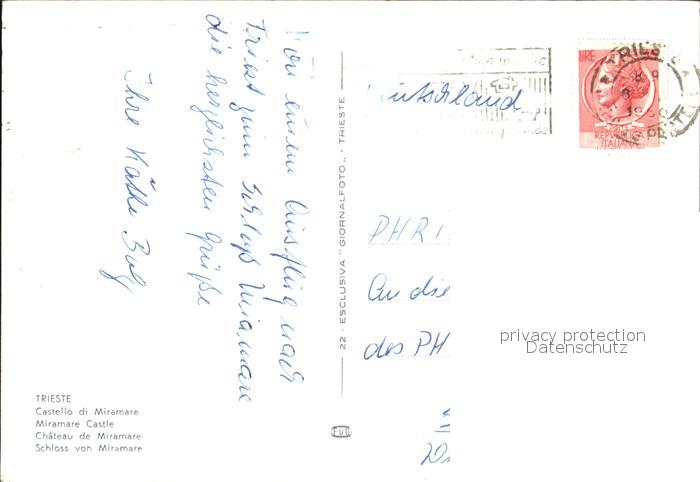 Von einem Ausflug nach
Triest zum Schloß Miramare
die herzlichsten Grüße
Ihre Käthe
TRIESTE
Castello di Miramare
Miramare Castle
Château de Miramare
Schloss von Miramare
22 - ESCLUSIVA "GIORNALFOTO" - TRIESTE
Deutschland
PHRI
An die
des PH
LIRE
POSTE
REPVBBLICA
ITALIANA
TRIESTE
privacy protection
Datenschutz